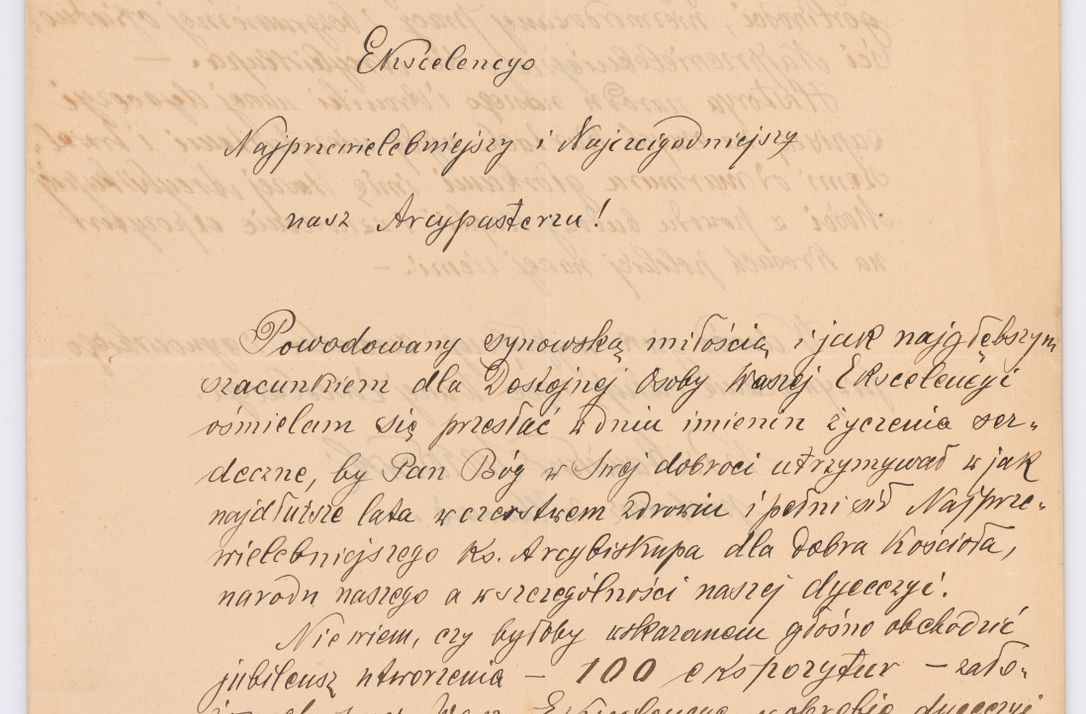 Ekscelencyo
Najprzewielebniejszy i Najczcigodniejszy
nasz Arcypasterzu!
Powodowany synowską miłością i jak najgłębszym
szacunkiem dla Dostojnej Osoby Waszej Ekscelencyi
ośmielam się przesłać w dniu imienin życzenia ser-
deczne, by Pan Bóg w Swej dobroci utrzymywał w jak
najdłuższe lata w czerstwem zdrowiu i pełni sił Najprze-
wielebniejszego Ks. Arcybiskupa dla dobra Kościoła,
narodu naszego a w szczególności naszej dyecezyi.
Nie wiem, czy byłoby wskazanem głośno obchodzić
jubileusz utworzenia – 100 ekspozytur – zało-